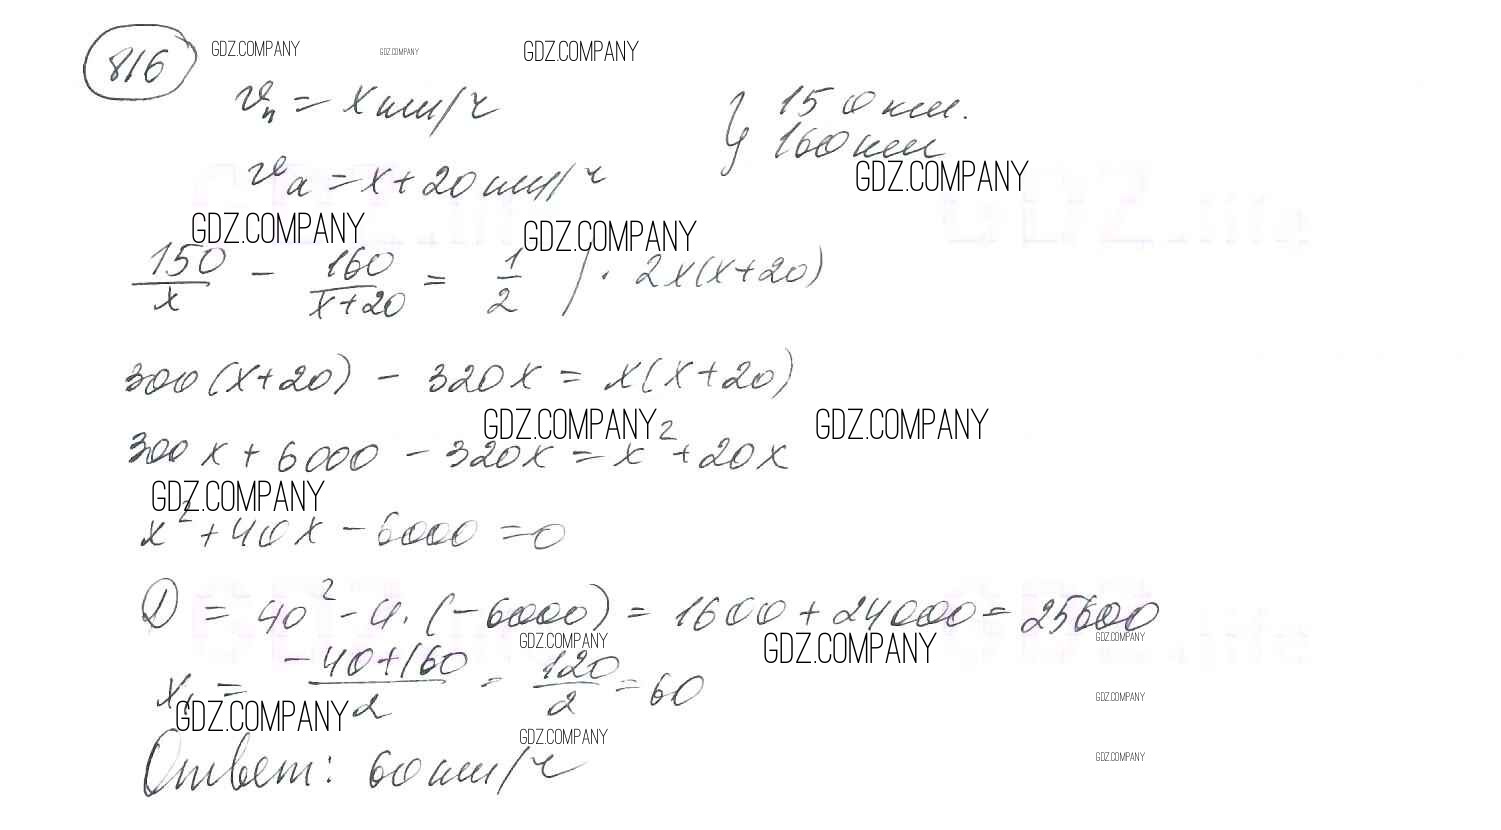 816 GDZ.COMPANY GDZ.COMPANY GDZ.COMPANY
vп = x км/ч 150 км.
160 км
vа = x + 20 км/ч GDZ.COMPANY
GDZ.COMPANY GDZ.COMPANY
150/x - 160/(x+20) = 1/2 | · 2x(x+20)
300(x+20) - 320x = x(x+20)
GDZ.COMPANY GDZ.COMPANY
300x + 6000 - 320x = x² + 20x
GDZ.COMPANY
x² + 40x - 6000 = 0
D = 40² - 4·(-6000) = 1600 + 24000 = 25600
GDZ.COMPANY GDZ.COMPANY GDZ.COMPANY
x₁ = (-40+160)/2 = 120/2 = 60
GDZ.COMPANY GDZ.COMPANY
GDZ.COMPANY GDZ.COMPANY
Ответ: 60 км/ч